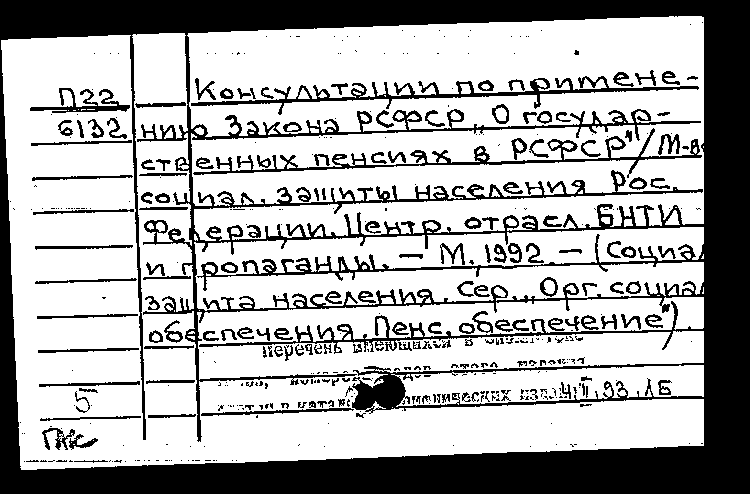 П22 Консультации по примене-
6132 нию Закона РСФСР „О государ-
ственных пенсиях в РСФСР"/М-во
социал. защиты населения Рос.
Федерации. Центр. отрасл. БНТИ
и пропаганды. — М. 1992. — (Социал
защита населения. Сер. „Орг. социал
обеспечения. Пенс. обеспечение").
Перечень имеющихся в библиотеке
номеров этого издания
5 93. 1Б